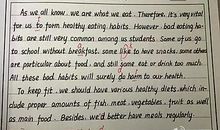 As we all know, we are what we eat. Therefore, it's very vital
for us to form healthy eating habits. However, bad eating ha-
bits are still very common among us students. Some of us go
to school without breakfast, some like to have snacks, some others
are particular about food, and still some eat or drink too much.
All these bad habits will surely do harm to our health.
To keep fit, we should have various healthy diets, which in-
clude proper amounts of fish, meat, vegetables, fruit as well
as main food. Besides, we'd better have meals regularly.